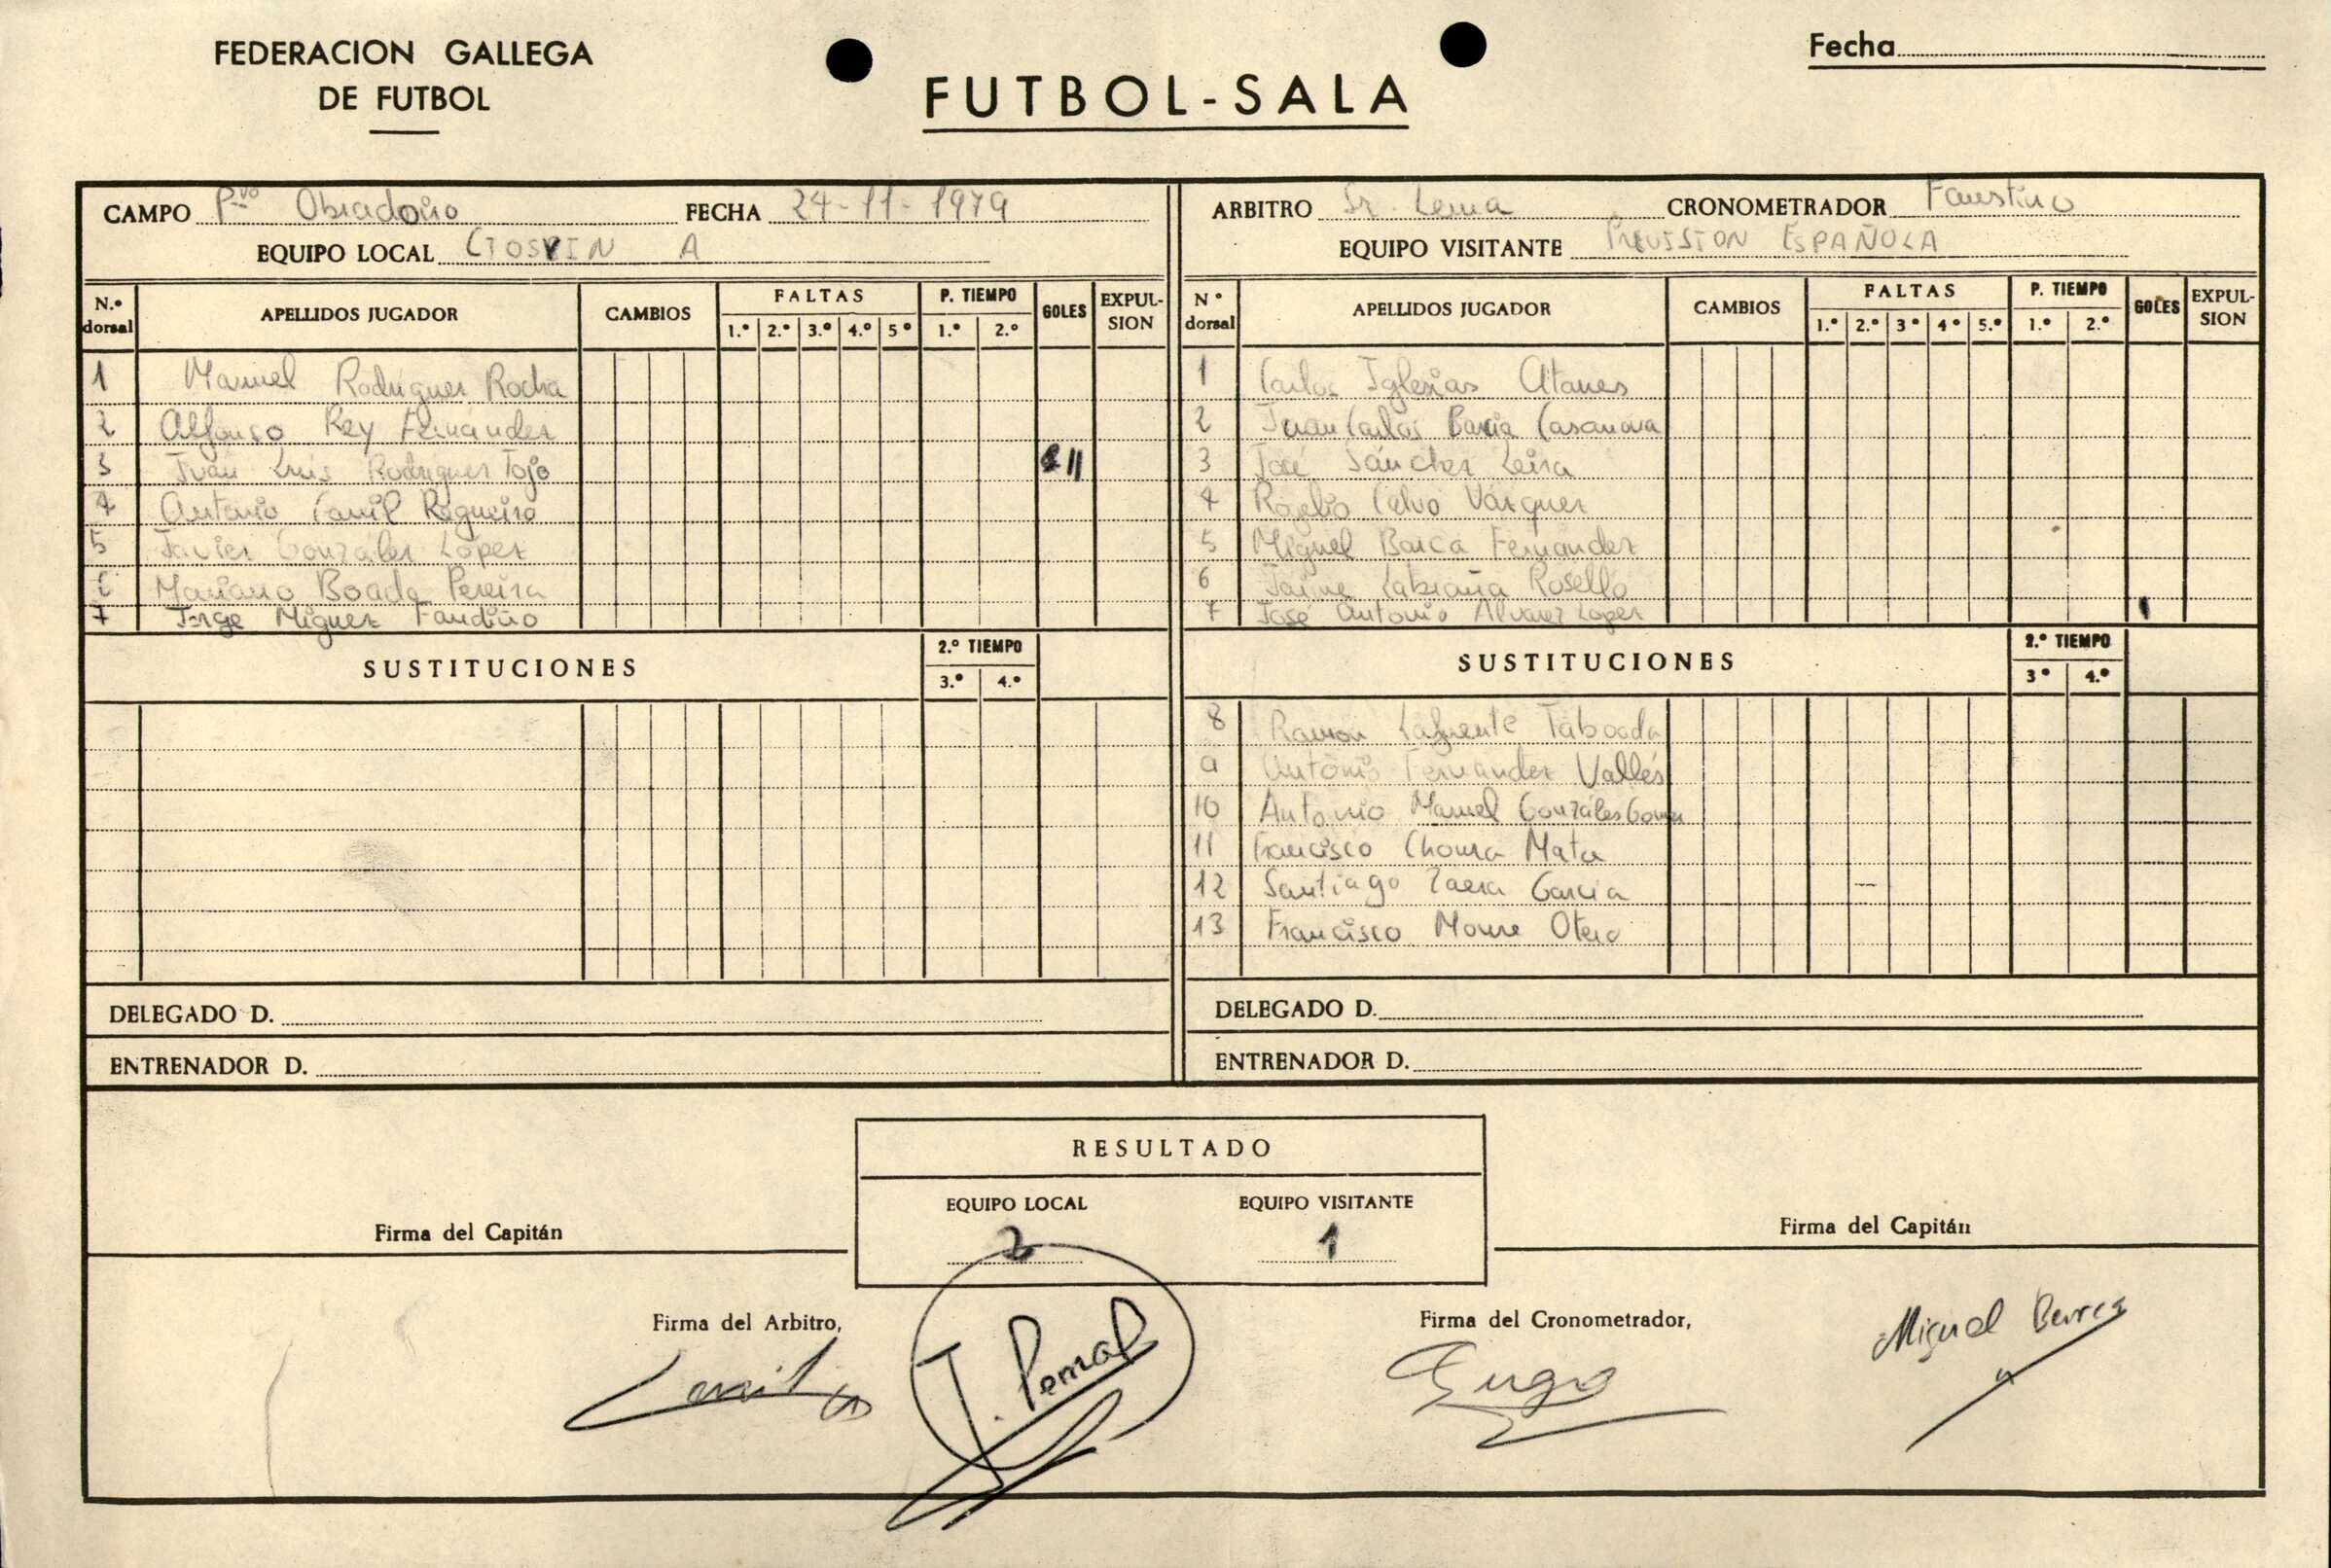 FEDERACION GALLEGA
DE FUTBOL
FUTBOL-SALA
Fecha
CAMPO Pvo Obradoiro FECHA 24-11-1979
EQUIPO LOCAL A
N.º dorsal APELLIDOS JUGADOR CAMBIOS FALTAS 1.º 2.º 3.º 4.º 5º P. TIEMPO 1.º 2.º GOLES EXPULSION
1 Manuel Rodriguez Rocha
2 Alfonso Rey Fernandez
3 Juan Luis Rodriguez Tojo 11
4 Antonio Camil Regueiro
5 Javier Gonzalez Lopez
6 Mariano Boado Pereira
7 Jorge Miguez Fandiño
SUSTITUCIONES 2.º TIEMPO 3.º 4.º
DELEGADO D.
ENTRENADOR D.
ARBITRO Sr. Lema CRONOMETRADOR Faustino
EQUIPO VISITANTE PREVISION ESPAÑOLA
Nº dorsal APELLIDOS JUGADOR CAMBIOS FALTAS 1.º 2.º 3º 4º 5.º P. TIEMPO 1.º 2.º GOLES EXPULSION
1 Carlos Iglesias Atanes
2 Juan Carlos Barcia Casanova
3 José Sánchez Leira
4 Rogelio Calvo Vázquez
5 Miguel Barca Fernandez
6 Jaime Labraña Rosello
7 José Antonio Alvarez Lopez 1
SUSTITUCIONES 2.º TIEMPO 3º 4.º
8 Ramon Lafuente Taboada
9 Antonio Fernandez Vallés
10 Antonio Manuel González Gomez
11 Francisco Mata
12 Santiago Zaera Garcia
13 Francisco Moure Otero
DELEGADO D.
ENTRENADOR D.
RESULTADO
EQUIPO LOCAL EQUIPO VISITANTE
2 1
Firma del Capitán
Firma del Capitán
Firma del Arbitro,
Firma del Cronometrador,
J. Pernal
Miguel Barca